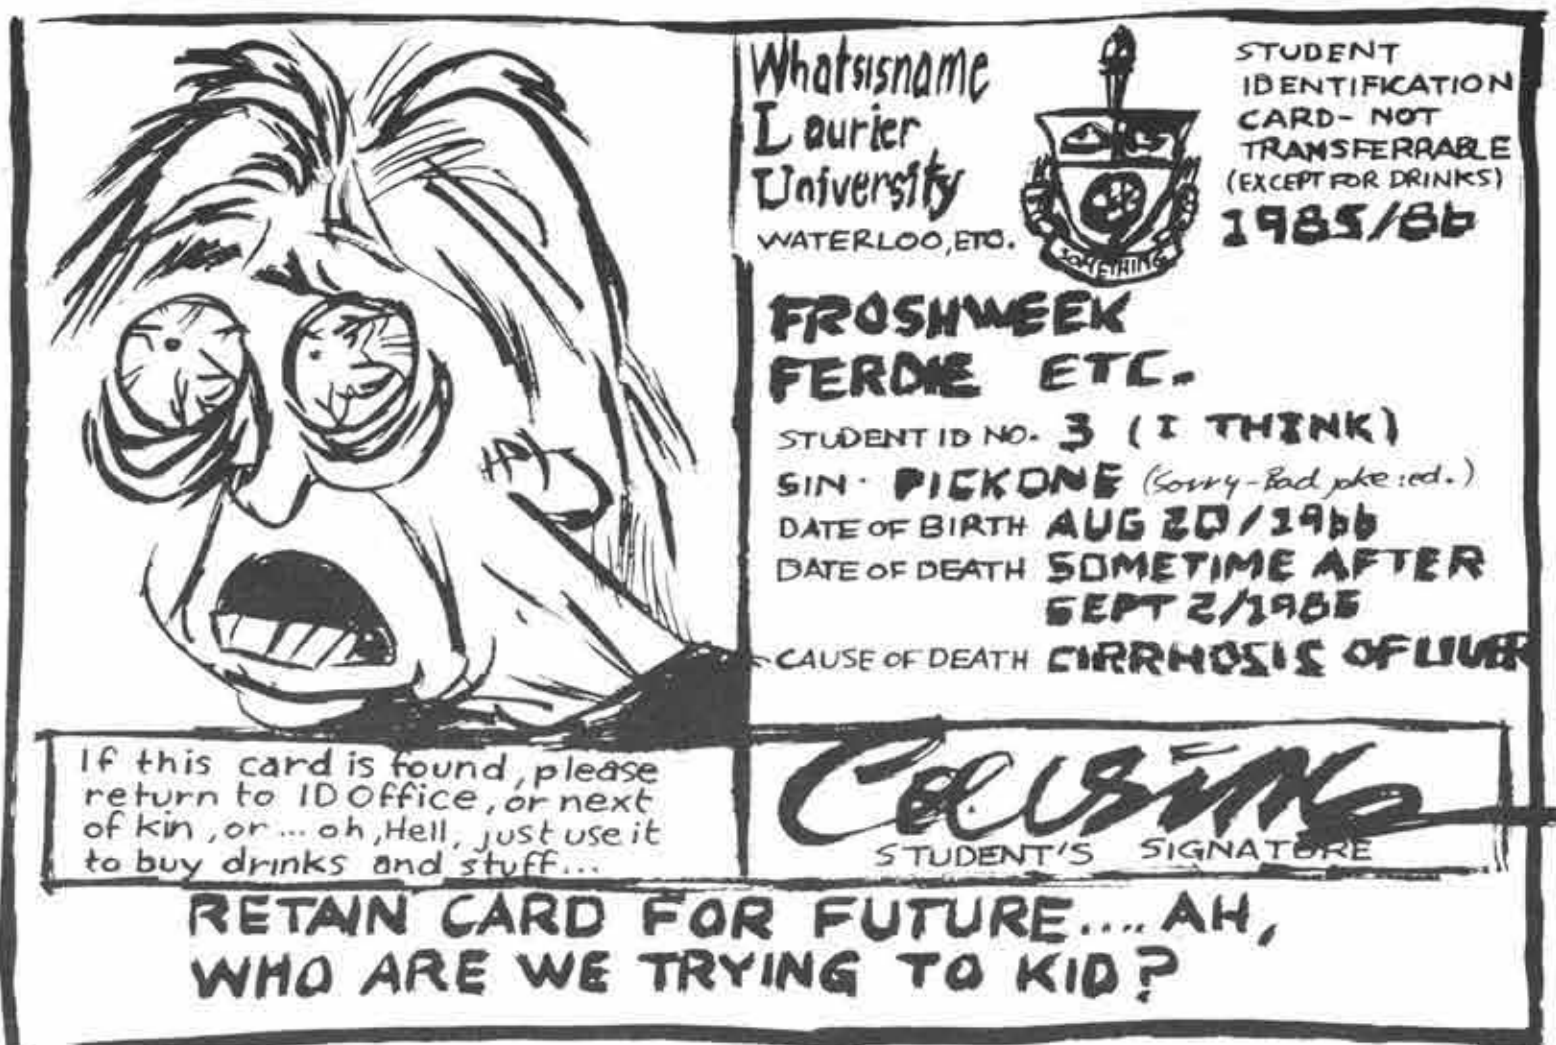 Whatsisname
Laurier
University
WATERLOO, ETC.
SOMETHING
STUDENT
IDENTIFICATION
CARD - NOT
TRANSFERRABLE
(EXCEPT FOR DRINKS)
1985/86
FROSHWEEK
FERDIE ETC.
STUDENT ID NO. 3 (I THINK)
SIN. PICK ONE (Sorry - Bad joke :ed.)
DATE OF BIRTH AUG 20/1966
DATE OF DEATH SOMETIME AFTER
SEPT 2/1985
CAUSE OF DEATH CIRRHOSIS OF LIVER
If this card is found, please
return to ID Office, or next
of kin, or... oh, Hell, just use it
to buy drinks and stuff...
STUDENT'S SIGNATURE
RETAIN CARD FOR FUTURE.... AH,
WHO ARE WE TRYING TO KID?